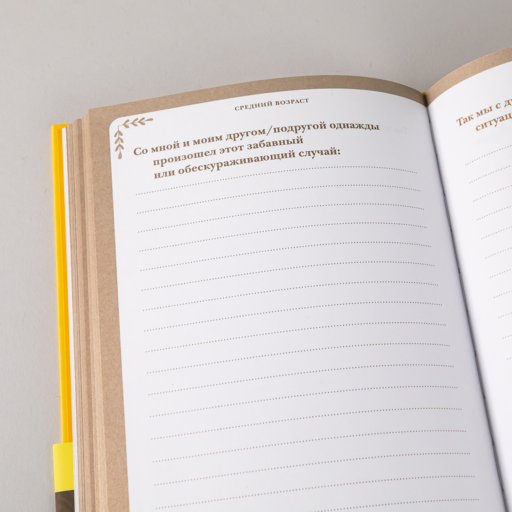 СРЕДНИЙ ВОЗРАСТ
Со мной и моим другом/подругой однажды
произошел этот забавный
или обескураживающий случай:
Так мы с
ситуац